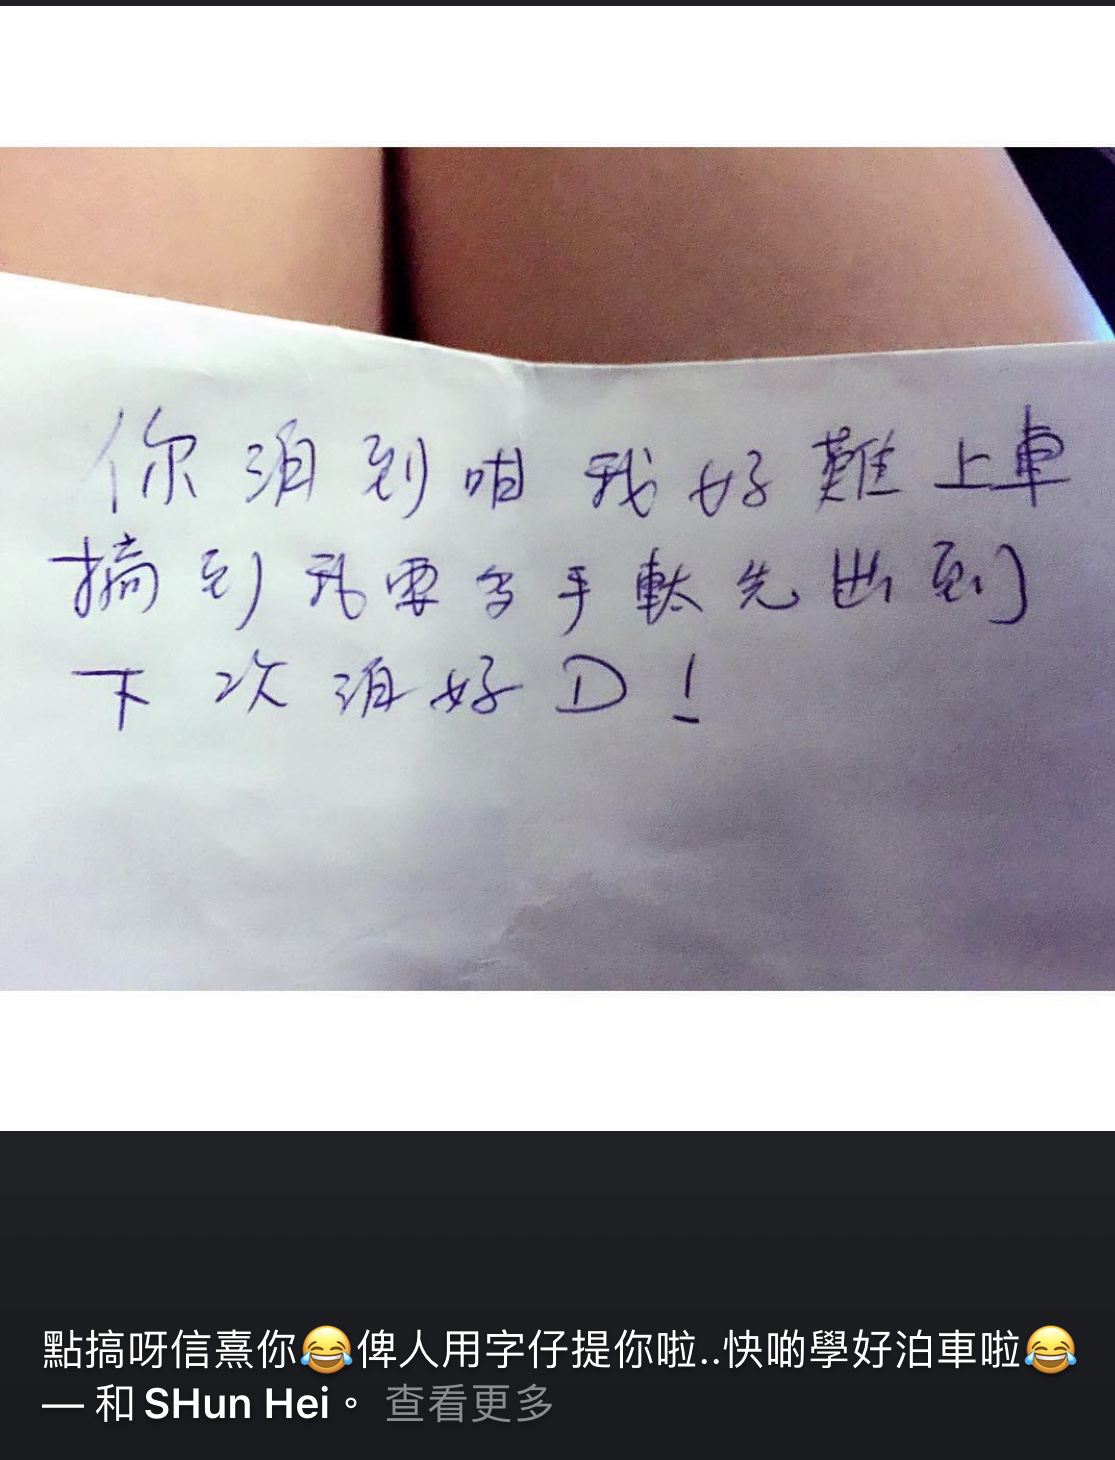 你泊到咁我好難上車
搞到我要多手軚先出到
下次泊好D!
點搞呀信熹你😂俾人用字仔提你啦..快啲學好泊車啦😂
— 和 SHun Hei。 查看更多